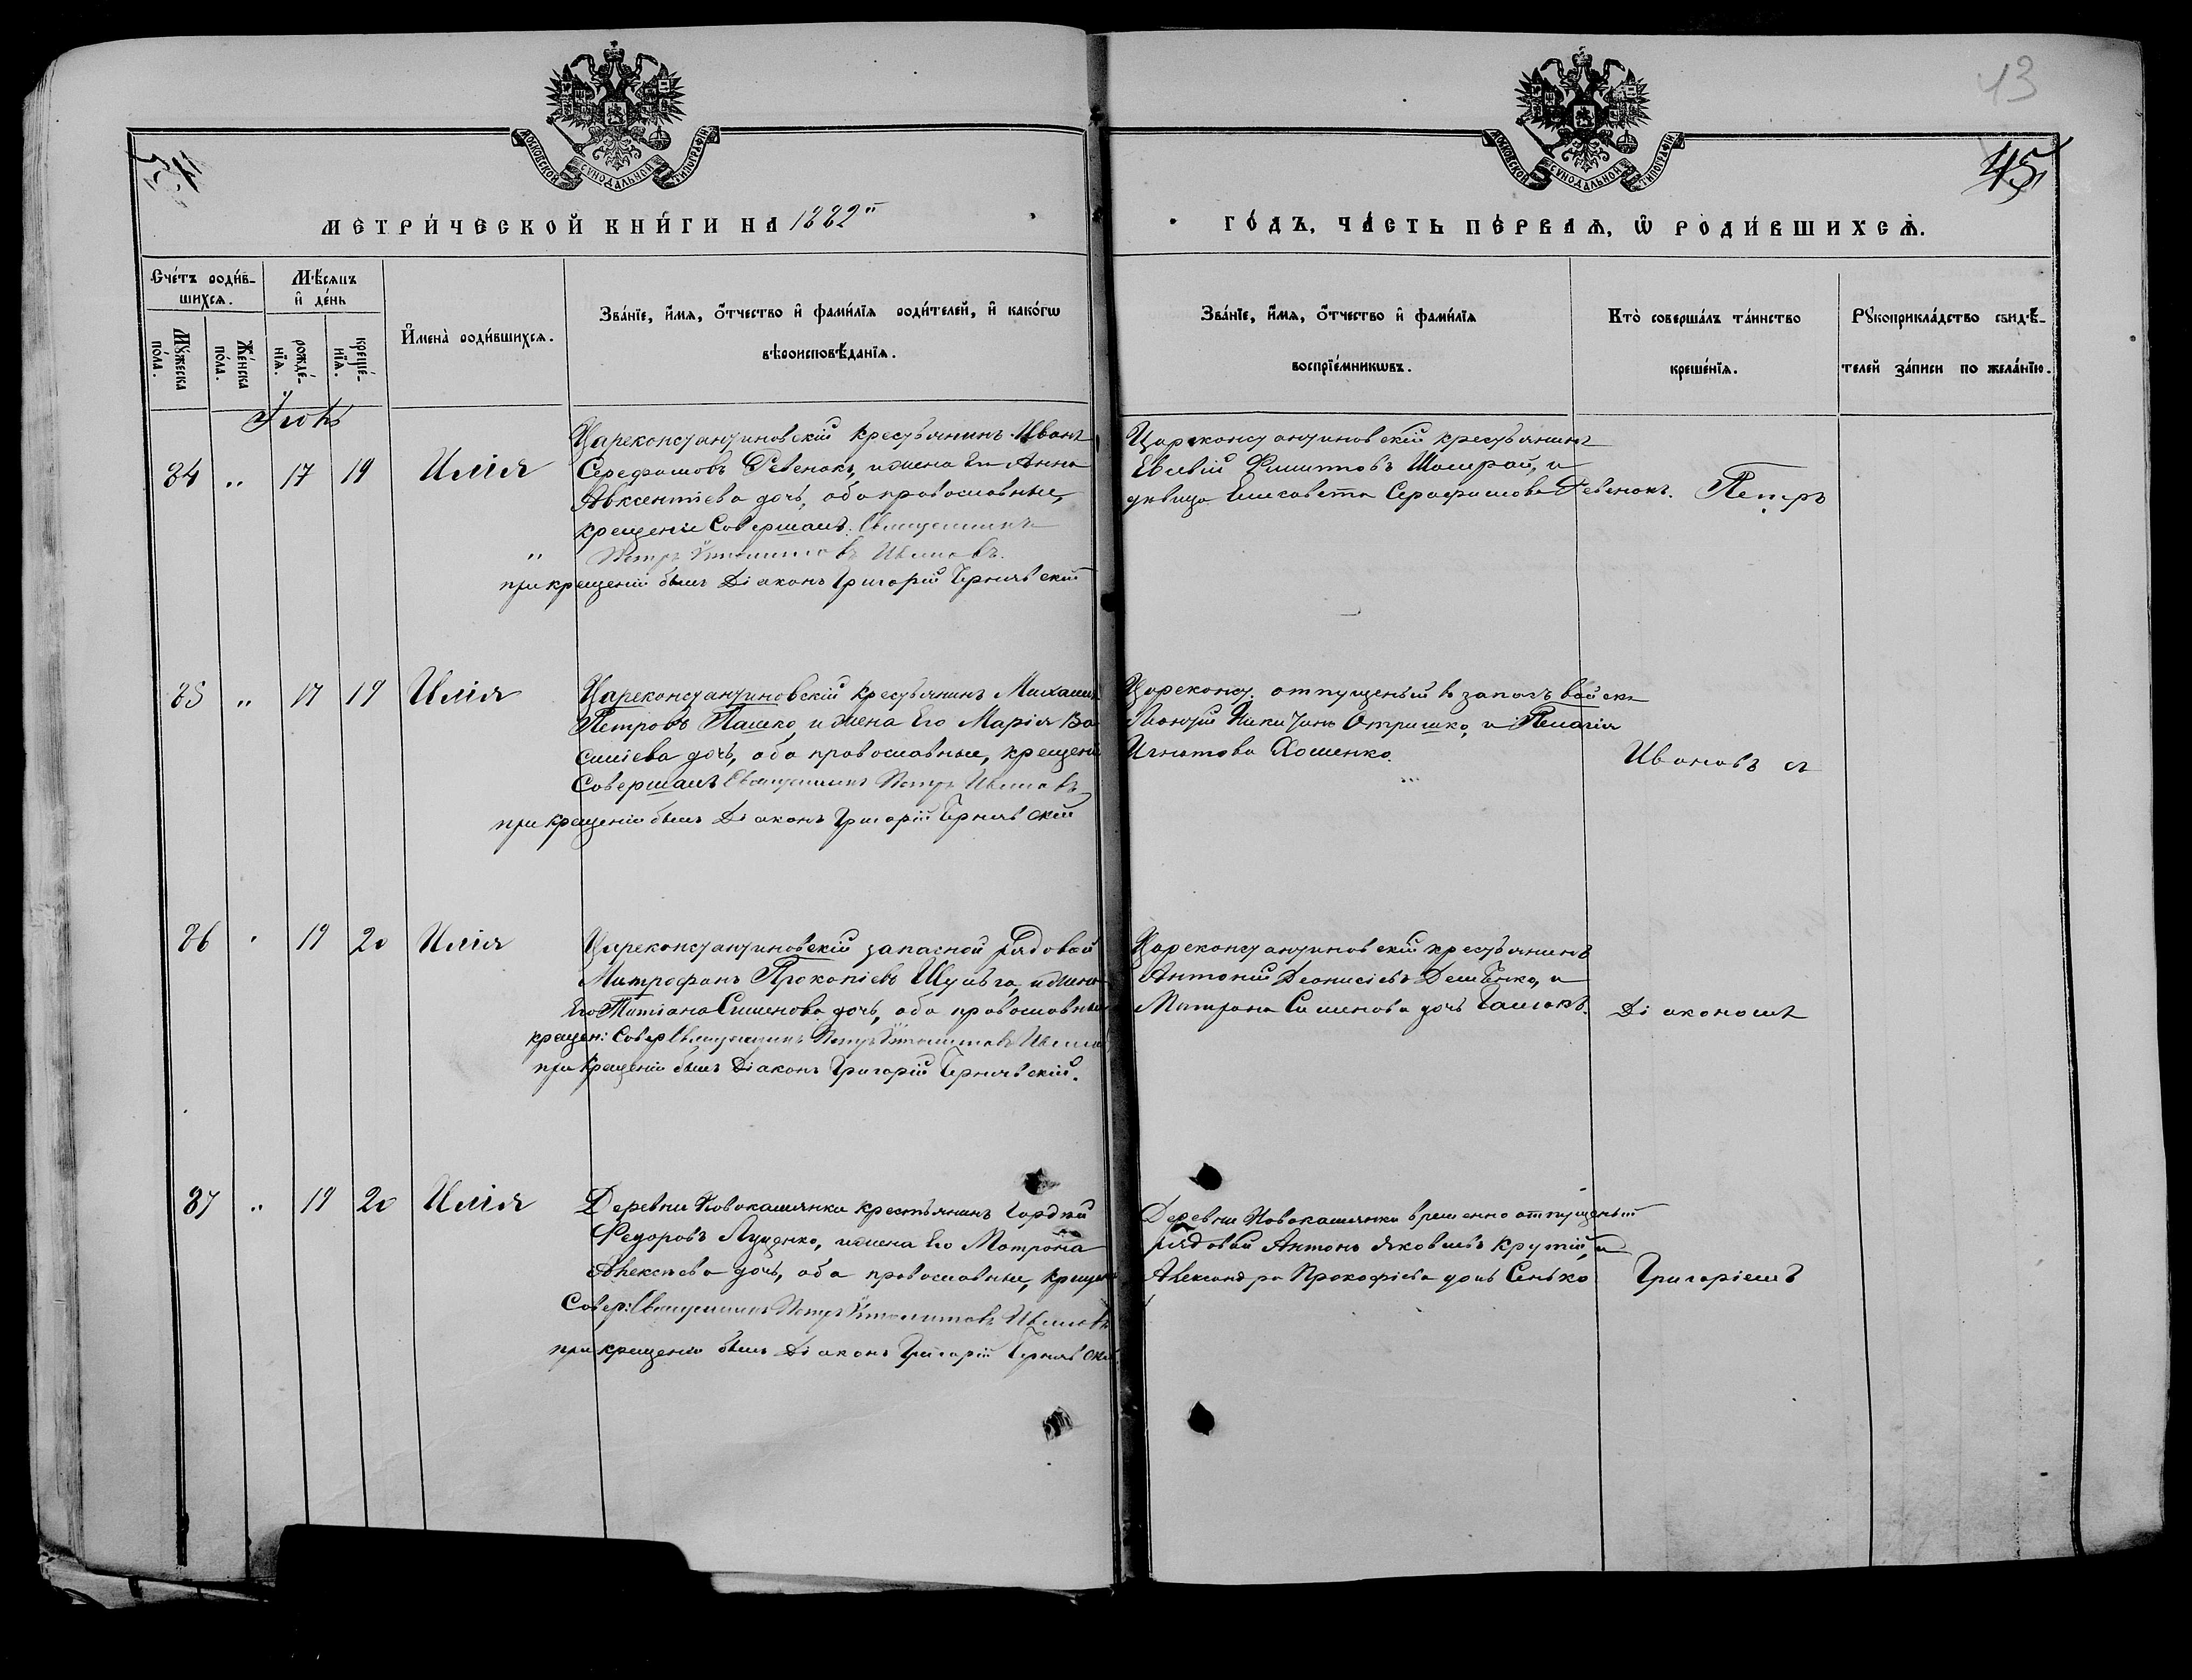 13
45
МОСКОВСКОЙ СѴНОДАЛЬНОЙ ТИПОГРАФІИ
МОСКОВСКОЙ СѴНОДАЛЬНОЙ ТИПОГРАФІИ
МЕТРИ́ЧЕСКОЙ КНИ́ГИ НА 1882й
ГО́ДЪ, ЧА́СТЬ ПЕ́РВАѦ, Ѡ҆ РОДИ́ВШИХСѦ.
Сче́тъ роди́в-
шихсѧ.
Мꙋ́жеска по́ла.
Же́нска по́ла.
Мѣ́сѧцъ
и҆ де́нь
рожде́-нїѧ.
креще́-нїѧ.
И҆мена̀ роди́вшихсѧ.
Зва́нїе, и҆́мѧ, ѻ҆́тчество и҆ фами́лїѧ роди́телей, и҆ како́гѡ
вѣроисповѣ́данїѧ.
Зва́нїе, и҆́мѧ, ѻ҆́тчество и҆ фами́лїѧ
воспрїе́мникѡвъ.
Кто̀ соверша́лъ та́инство
креще́нїѧ.
Рꙋкоприкла́дство свидѣ́-
телей за́писи по жела́нїю.
Іюль
84 „ 17 19 Илія
Цареконстантиновскій крестьянинъ Иванъ
Серафимовъ Ревенокъ, и жена Его Анна
Авксентіева дочь, оба православные,
крещеніе Совершалъ: Священникъ
„ Петръ Ивановъ.
при крещеніи былъ Діаконъ Григорій Чернявскій
Цареконстантиновскій крестьянинъ
Евсевій Филиповъ Шамрай, и
дѣвица Елисавета Серафимова Ревенокъ.
Петръ
85 „ 17 19 Илія
Цареконстантиновскій крестьянинъ Михаилъ
Петровъ Пашко, и жена Его Марія Ва
силіева дочь, оба православные, крещеніе
Совершалъ Священникъ Петръ Ивановъ
при крещеніи былъ Діаконъ Григорій Чернявскій
Цареконст. отпущеный в запасъ войскъ
Никитинъ Отришко, и Пелагія
Игнатова Хоменко.
Ивановъ съ
86 „ 19 20 Илія
Цареконстантиновскій запасной рядовой
Митрофанъ Прокопіевъ Шульга, и жена
Его Татіана Сименова дочь, оба православные
крещен: Совер Священникъ Петръ Ивановъ
при крещеніи былъ Діаконъ Григорій Чернявскій.
Цареконстантиновскій крестьянинъ
Антоній Деонисіевъ Демченко, и
Матрона Сименова дочь
Діакономъ
87 „ 19 20 Илія
Деревни Новокаменки крестьянинъ Гордѣй
Федоровъ Луценко, и жена Его Матрона
Алексѣева дочь, оба православные, крещеніе
Совер: Священникъ Петръ Ивановъ
при крещеніи былъ Діаконъ Григорій Чернявскій.
Деревни Новокаменки временно отпущеный
рядовый Антонъ Яковлевъ Крутій, и
Александра Прокофіева дочь Сенько
Григоріемъ